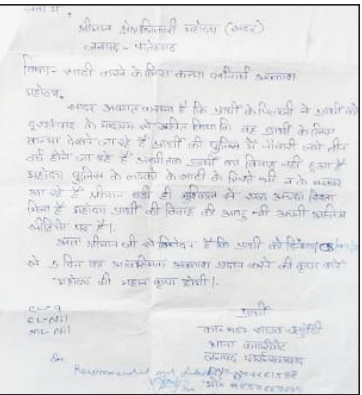 सेवा में,
श्रीमान क्षेत्राधिकारी महोदय (सदर)
जनपद - फतेहगढ़
विषय - शादी करने के लिए कन्या अवकाश
महोदय,
सादर अवगत कराना है कि प्रार्थी के पिताजी ने प्रार्थी को
दूरसंचार के माध्यम से सूचित किया कि वह प्रार्थी के लिए
कन्या देखने जा रहे हैं प्रार्थी की पुलिस में नौकरी लगे तीन
वर्ष होने जा रहे हैं अभी तक प्रार्थी का विवाह नहीं हुआ है
महोदय पुलिस के लड़को के शादी के रिश्ते भी न के बराबर
आ रहे हैं श्रीमान बड़ी ही मुश्किल से एक अच्छा रिश्ता
मिला है महोदय प्रार्थी की विवाह की आयु भी अपनी अन्तिम
पर है।
अतः श्रीमान जी से निवेदन है कि प्रार्थी को दिनांक
से 5 दिन का आकस्मिक अवकाश प्रदान करने की कृपा करें
महोदय की महान कृपा होगी।
प्रार्थी
थाना कादरीगेट
जनपद फर्रुखाबाद
Recommended and